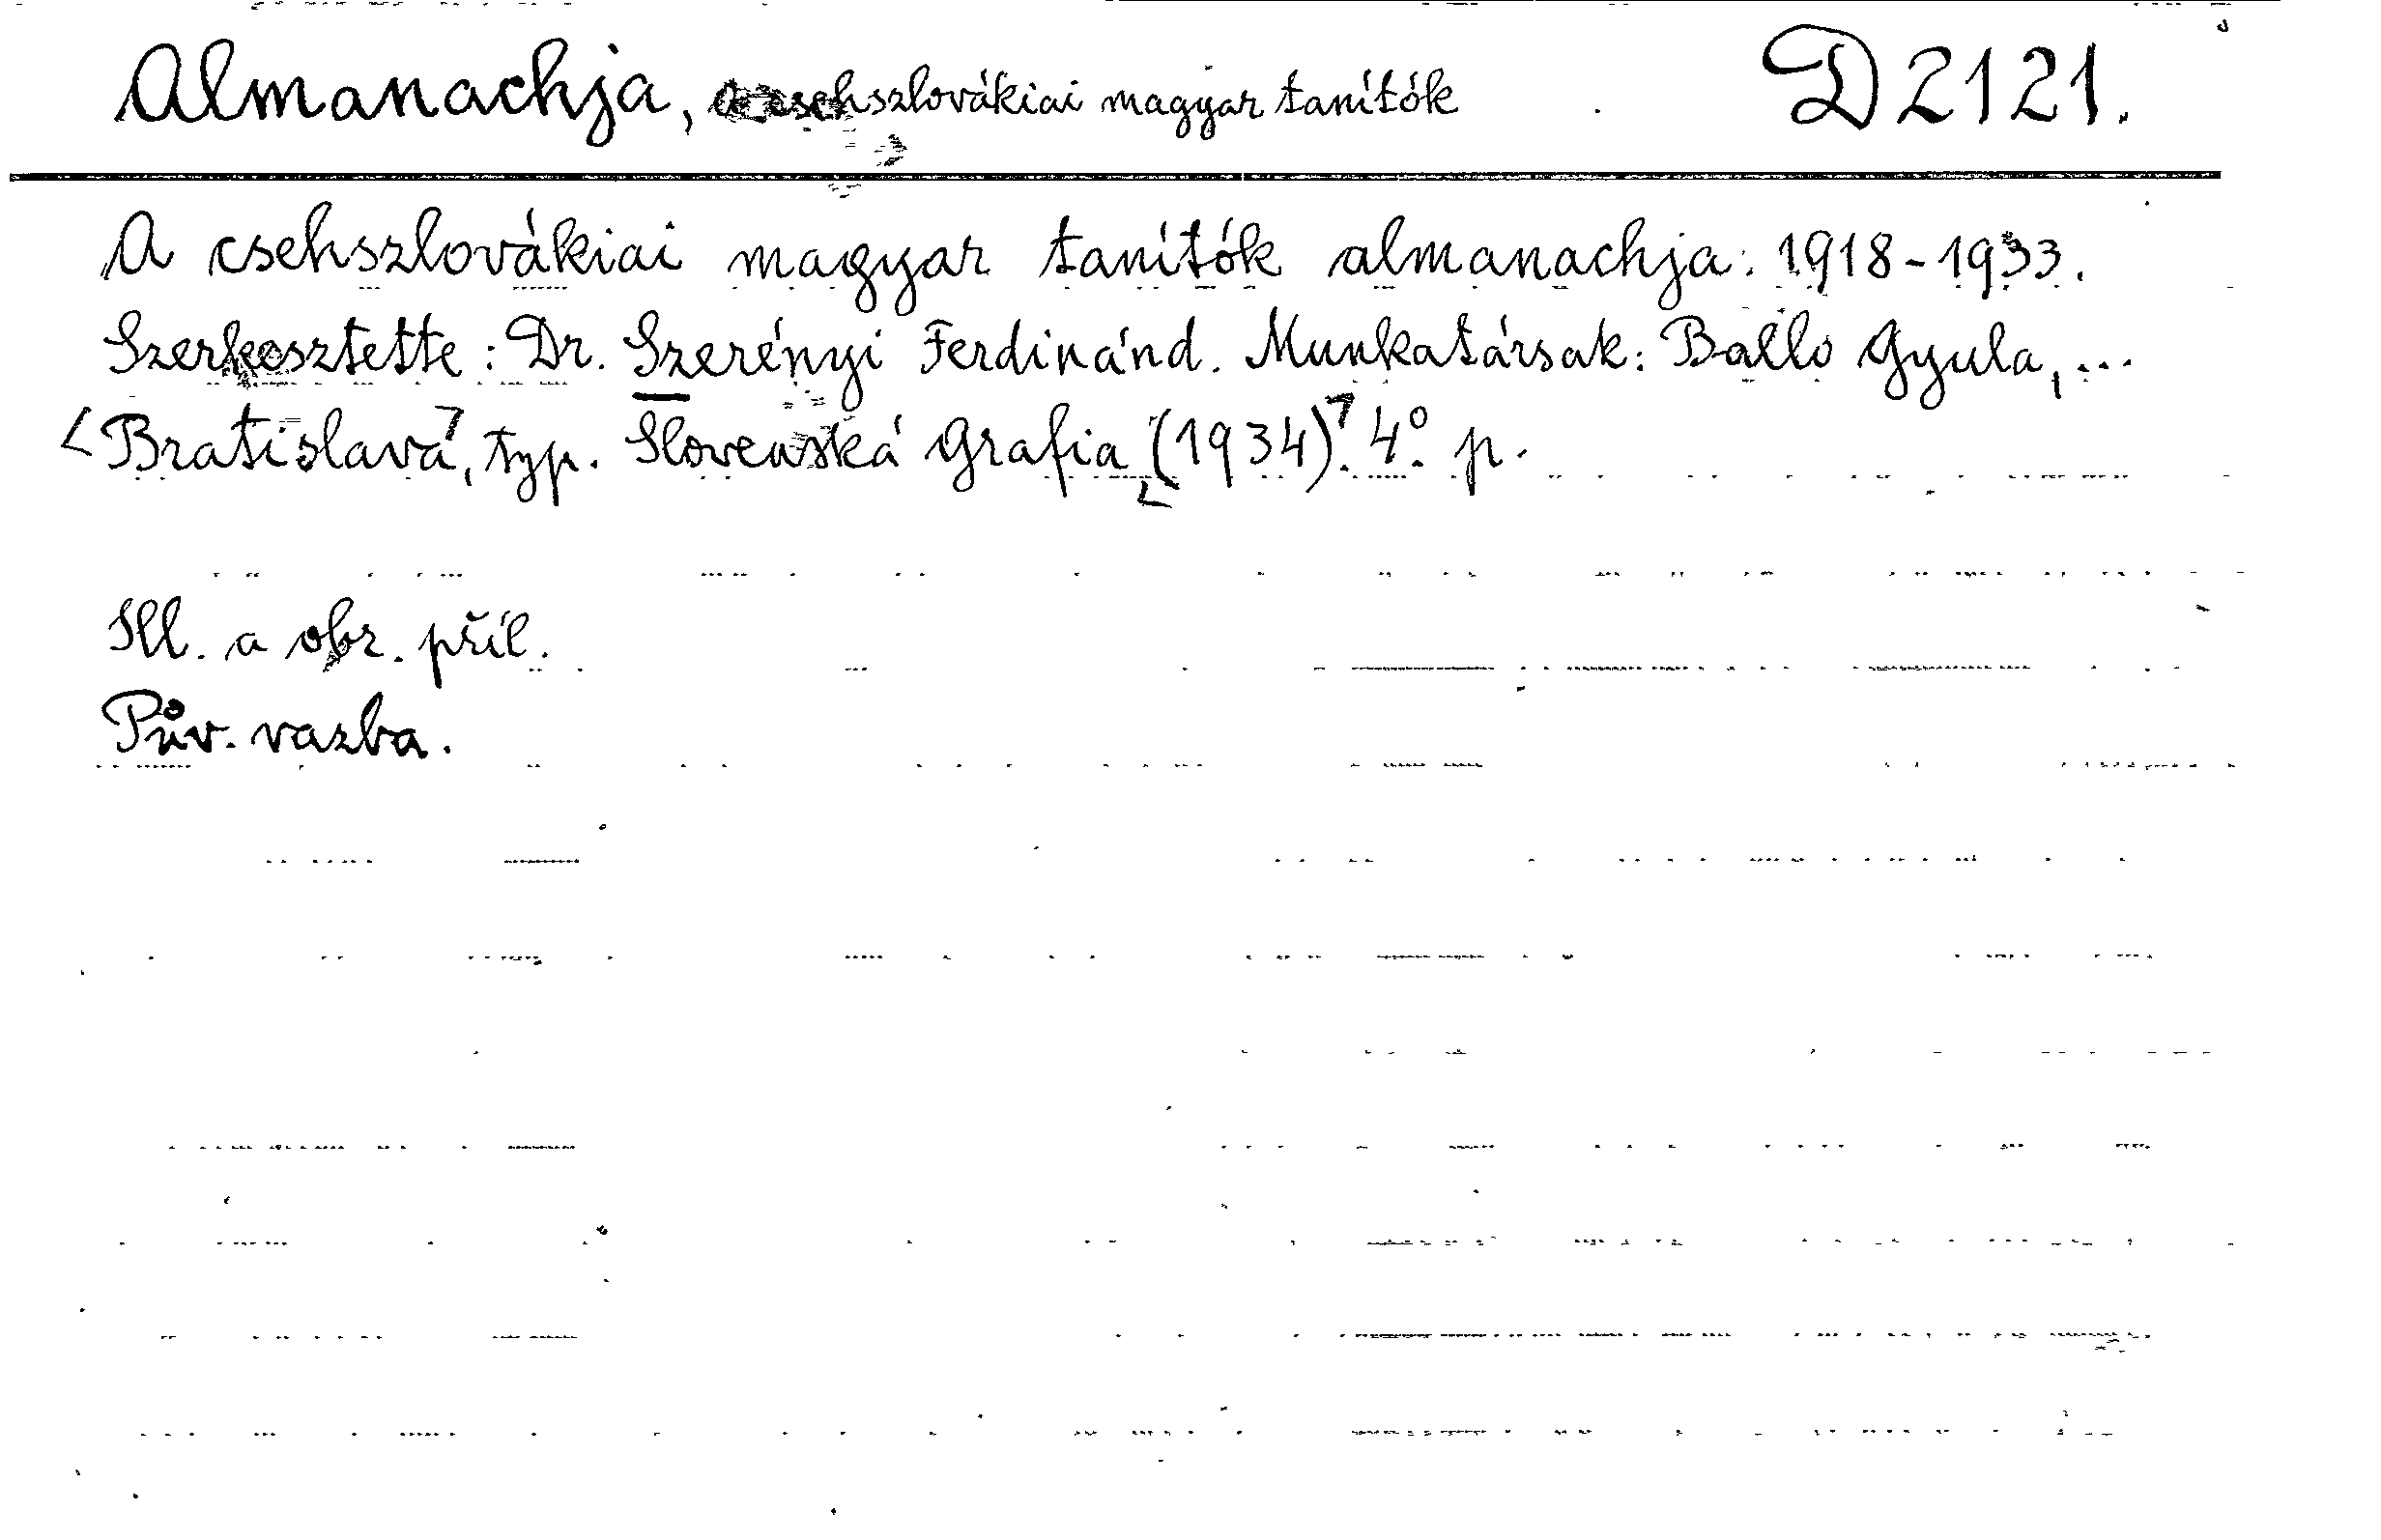 Almanachja, a csehszlovákiai magyar tanítók D 2121.
A csehszlovákiai magyar tanítók almanachja: 1918-1933.
Szerkesztette: Dr. Szerényi Ferdinánd. Munkatársak: Balló Gyula, ...
<Bratislava>, typ. Slovenská Grafia <(1934)>. 4°. p.
Ill. a obr. příl.
Pův. vazba.